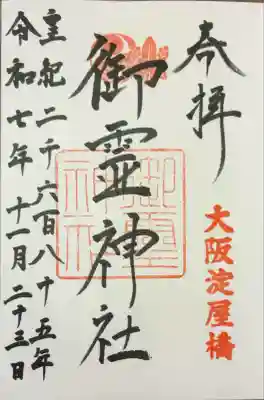 奉拝
大阪淀屋橋
御霊神社
御霊神社
皇紀二千六百八十五年
令和七年十一月二十三日